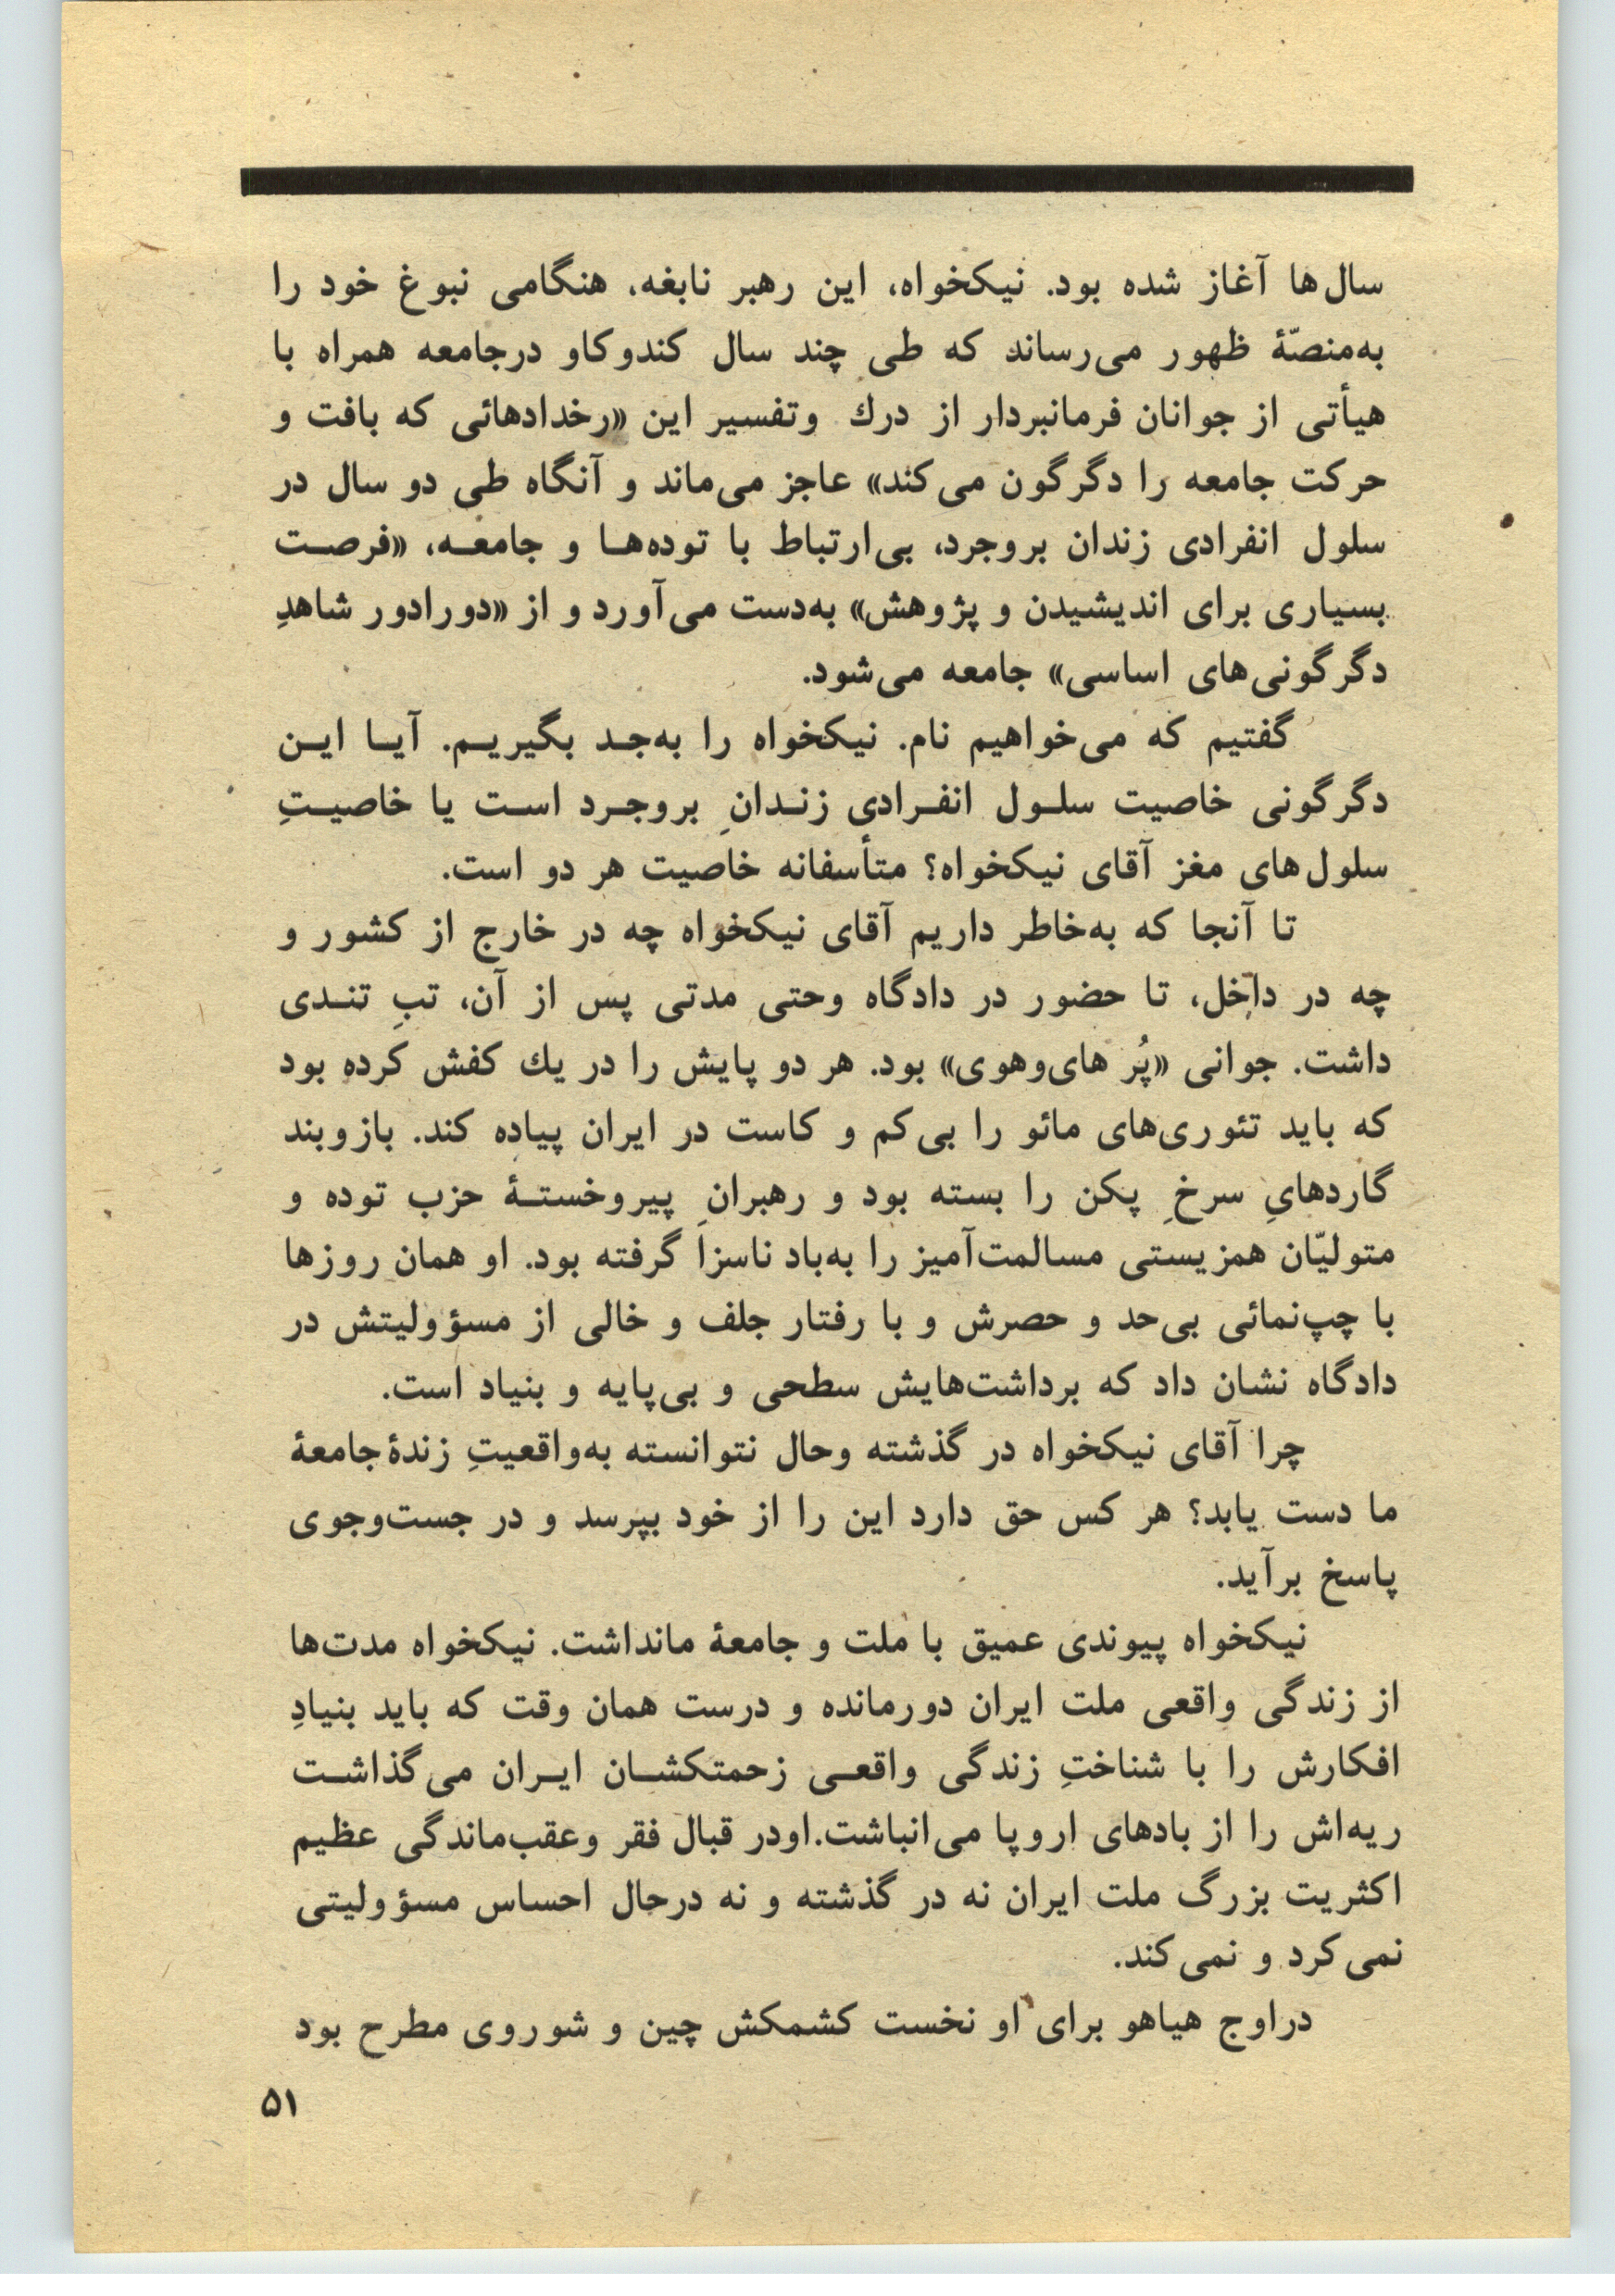 سال‌ها آغاز شده بود. نیکخواه، این رهبر نابغه، هنگامی نبوغ خود را
به‌منصّهٔ ظهور می‌رساند که طی چند سال کندوکاو درجامعه همراه با
هیأتی از جوانان فرمانبردار از درك وتفسیر این «رخدادهائی که بافت و
حرکت جامعه را دگرگون می‌کند» عاجز می‌ماند و آنگاه طی دو سال در
سلول انفرادی زندان بروجرد، بی‌ارتباط با توده‌هـا و جامعـه، «فرصـت
بسیاری برای اندیشیدن و پژوهش» به‌دست می‌آورد و از «دورادور شاهدِ
دگرگونی‌های اساسی» جامعه می‌شود.
گفتیم که می‌خواهیم نام. نیکخواه را به‌جـد بگیریـم. آیـا ایـن
دگرگونی خاصیت سلـول انفـرادی زنـدانِ بروجـرد اسـت یا خاصیـتِ
سلول‌های مغز آقای نیکخواه؟ متأسفانه خاصیت هر دو است.
تا آنجا که به‌خاطر داریم آقای نیکخواه چه در خارج از کشور و
چه در داخل، تا حضور در دادگاه وحتی مدتی پس از آن، تبِ تنـدی
داشت. جوانی «پُر های‌وهوی» بود. هر دو پایش را در یك کفش کرده بود
که باید تئوری‌های مائو را بی‌کم و کاست در ایران پیاده کند. بازوبند
گاردهایِ سرخِ پکن را بسته بود و رهبرانِ پیروخستـهٔ حزب توده و
متولیّان همزیستی مسالمت‌آمیز را به‌باد ناسزا گرفته بود. او همان روزها
با چپ‌نمائی بی‌حد و حصرش و با رفتار جلف و خالی از مسؤولیتش در
دادگاه نشان داد که برداشت‌هایش سطحی و بی‌پایه و بنیاد است.
چرا آقای نیکخواه در گذشته وحال نتوانسته به‌واقعیتِ زندهٔ جامعهٔ
ما دست یابد؟ هر کس حق دارد این را از خود بپرسد و در جست‌وجوی
پاسخ برآید.
نیکخواه پیوندی عمیق با ملت و جامعهٔ مانداشت. نیکخواه مدت‌ها
از زندگی واقعی ملت ایران دورمانده و درست همان وقت که باید بنیادِ
افکارش را با شناختِ زندگی واقعـی زحمتکشـان ایـران می‌گذاشـت
ریه‌اش را از بادهای اروپا می‌انباشت.اودر قبال فقر وعقب‌ماندگی عظیم
اکثریت بزرگ ملت ایران نه در گذشته و نه درحال احساس مسؤولیتی
نمی‌کرد و نمی‌کند.
دراوج هیاهو برای او نخست کشمکش چین و شوروی مطرح بود
۵۱